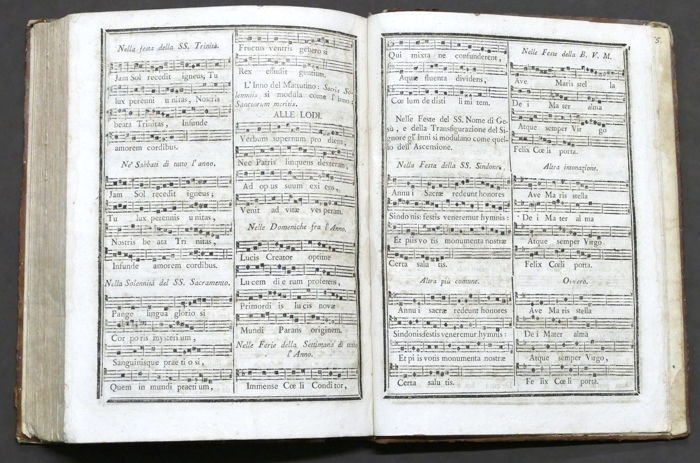 Nella festa della SS. Trinità.
Jam Sol recedit igneus, Tu
lux perennis unitas, Nostris
beata Trinitas, Infunde
amorem cordibus.
Ne' Sabbati di tutto l'anno.
Jam Sol recedit igneus;
Tu lux perennis unitas,
Nostris be ata Tri nitas,
Infunde amorem cordibus.
Nella Solennità del SS. Sacramento.
Pange lingua glorio si
Cor po ris mysterium,
Sanguinisque pre ti o si,
Quem in mundi pretium,
Fructus ventris genero si
Rex effudit gentium.
L'Inno del Mattutino: Sacris So-
lemniis si modula come l'Inno:
Sanctorum meritis.
ALLE LODI.
Verbum supernum pro diens,
Nec Patris linquens dexteram,
Ad opus suum exi ens,
Venit ad vitæ ves peram.
Nelle Domeniche fra l'Anno.
Lucis Creator optime
Lu cem di e rum proferens,
Primordi is lu cis novæ
Mundi Parans originem.
Nelle Ferie della Settimana di tutto
l'Anno.
Immense Cœ li Condi tor,
Qui mixta ne confunderent,
Aquæ fluenta dividens,
Cœ lum de disti li mi tem.
Nelle Feste del SS. Nome di Ge-
sù, e della Transfigurazione del Si-
gnore gl'Inni si modulano come quel-
lo dell'Ascensione.
Nella Festa della SS. Sindone.
Annu i Sacræ redeunt honores
Sindo nis: festis veneremur hymnis:
Et pi is vo tis monumenta nostræ
Certa salu tis.
Altra più comune.
Annu i sacræ redeunt honores
Sindonis festis veneremur hymnis:
Et pi is votis monumenta nostræ
Certa salu tis.
5
Nelle Feste della B. V. M.
Ave Maris stel la
De i Ma ter alma
Atque semper Vir go
Felix Cœ li porta.
Altra intonazione.
Ave Ma ris stella
De i Ma ter al ma
Atque semper Virgo
Felix Cœli porta.
Ovvero.
Ave Ma ris stella
De i Mater almà
Atque semper Virgo,
Fe lix Cœ li porta.